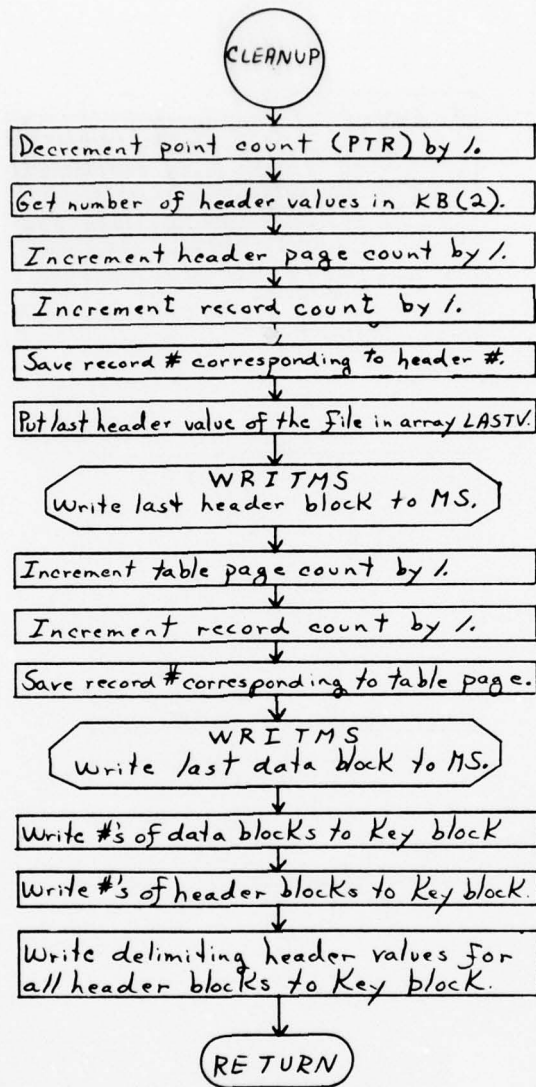 CLEANUP
Decrement point count (PTR) by 1.
Get number of header values in KB(2).
Increment header page count by 1.
Increment record count by 1.
Save record # corresponding to header #.
Put last header value of the file in array LASTV.
WRITMS
Write last header block to MS.
Increment table page count by 1.
Increment record count by 1.
Save record # corresponding to table page.
WRITMS
Write last data block to MS.
Write #'s of data blocks to Key block
Write #'s of header blocks to Key block.
Write delimiting header values for
all header blocks to Key block.
RETURN